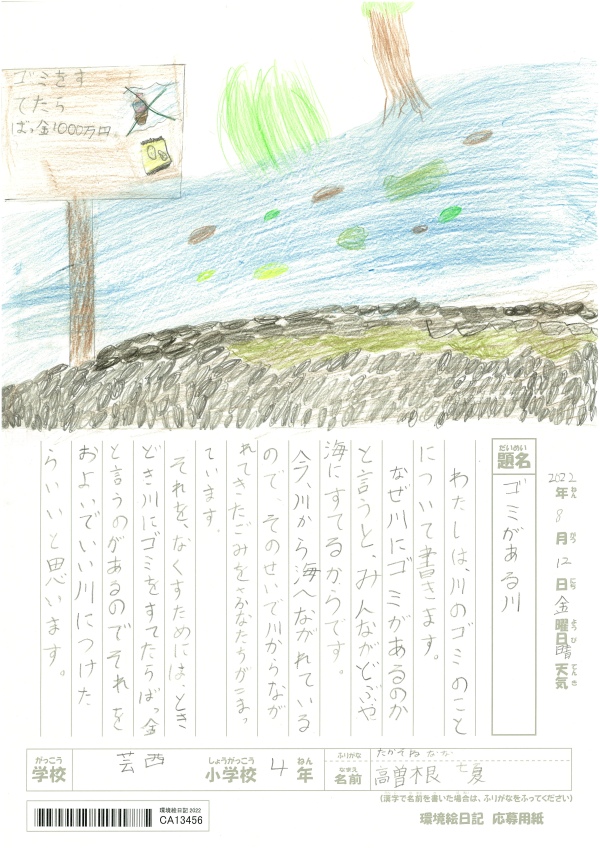 ゴミをす
てたら
ばっ金1000万円
だいめい
題名
ゴミがある川
2022年 8月 12日 金曜日 晴 天気
ねん がつ にち ようび てんき
わたしは、川のゴミのこと
について書きます。
なぜ川にゴミがあるのか
と言うと、み人ながどぶや
海にすてるからです。
今、川から海へながれている
ので、そのせいで川からなが
れてきたごみをさかなたちがこまっ
ています。
それを、なくすためには、とき
どき川にゴミをすてたらばっ金
と言うのがあるのでそれを
およいでいい川につけた
らいいと思います。
がっこう
学校
芸西
しょうがっこう
小学校
4
ねん
年
ふりがな
なまえ
名前
高曽根 七夏
(漢字で名前を書いた場合は、ふりがなをふってください)
環境絵日記 2022
CA13456
環境絵日記 応募用紙